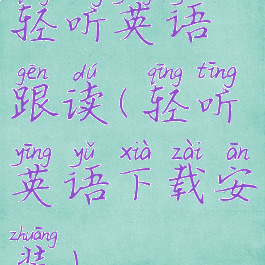 轻听英语
gēn dú qīng tīng
跟读(轻听
yīng yǔ xià zài ān
英语下载安
zhuāng
装)